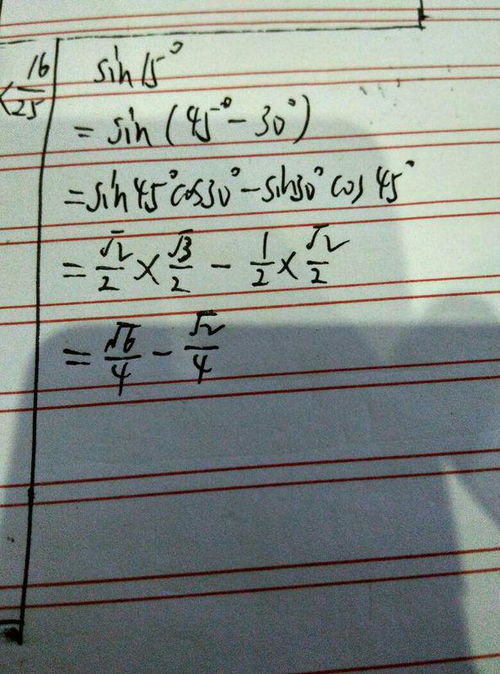 < 16/25
sin15°
= sin(45°-30°)
= sin45°cos30°-sin30°cos45°
= √2/2 × √3/2 - 1/2 × √2/2
= √6/4 - √2/4